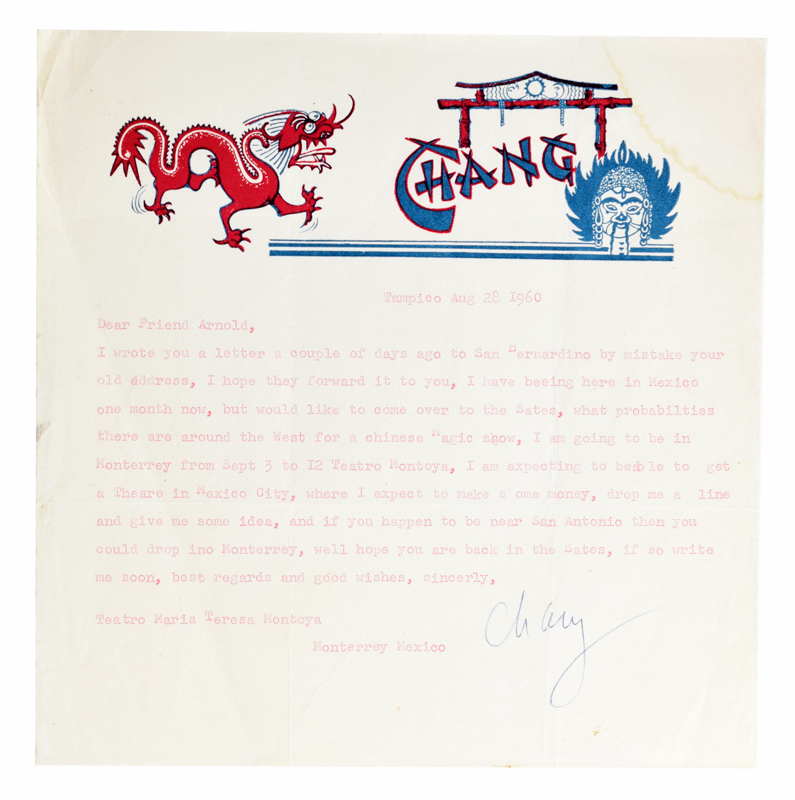 CHANG
Tampico Aug 28 1960
Dear Friend Arnold,
I wrote you a letter a couple of days ago to San Bernardino by mistake your
old address, I hope they forward it to you, I have beeing here in Mexico
one month now, but would like to come over to the Sates, what probabilties
there are around the West for a chinese Magic show, I am going to be in
Monterrey from Sept 3 to 12 Teatro Montoya, I am expecting to beable to get
a Theare in Mexico City, where I expect to make s ome money, drop me a line
and give me some idea, and if you happen to be near San Antonio then you
could drop ino Monterrey, well hope you are back in the Sates, if so write
me soon, best regards and good wishes, sincerely,
Teatro Maria Teresa Montoya
Monterrey Mexico
Chang